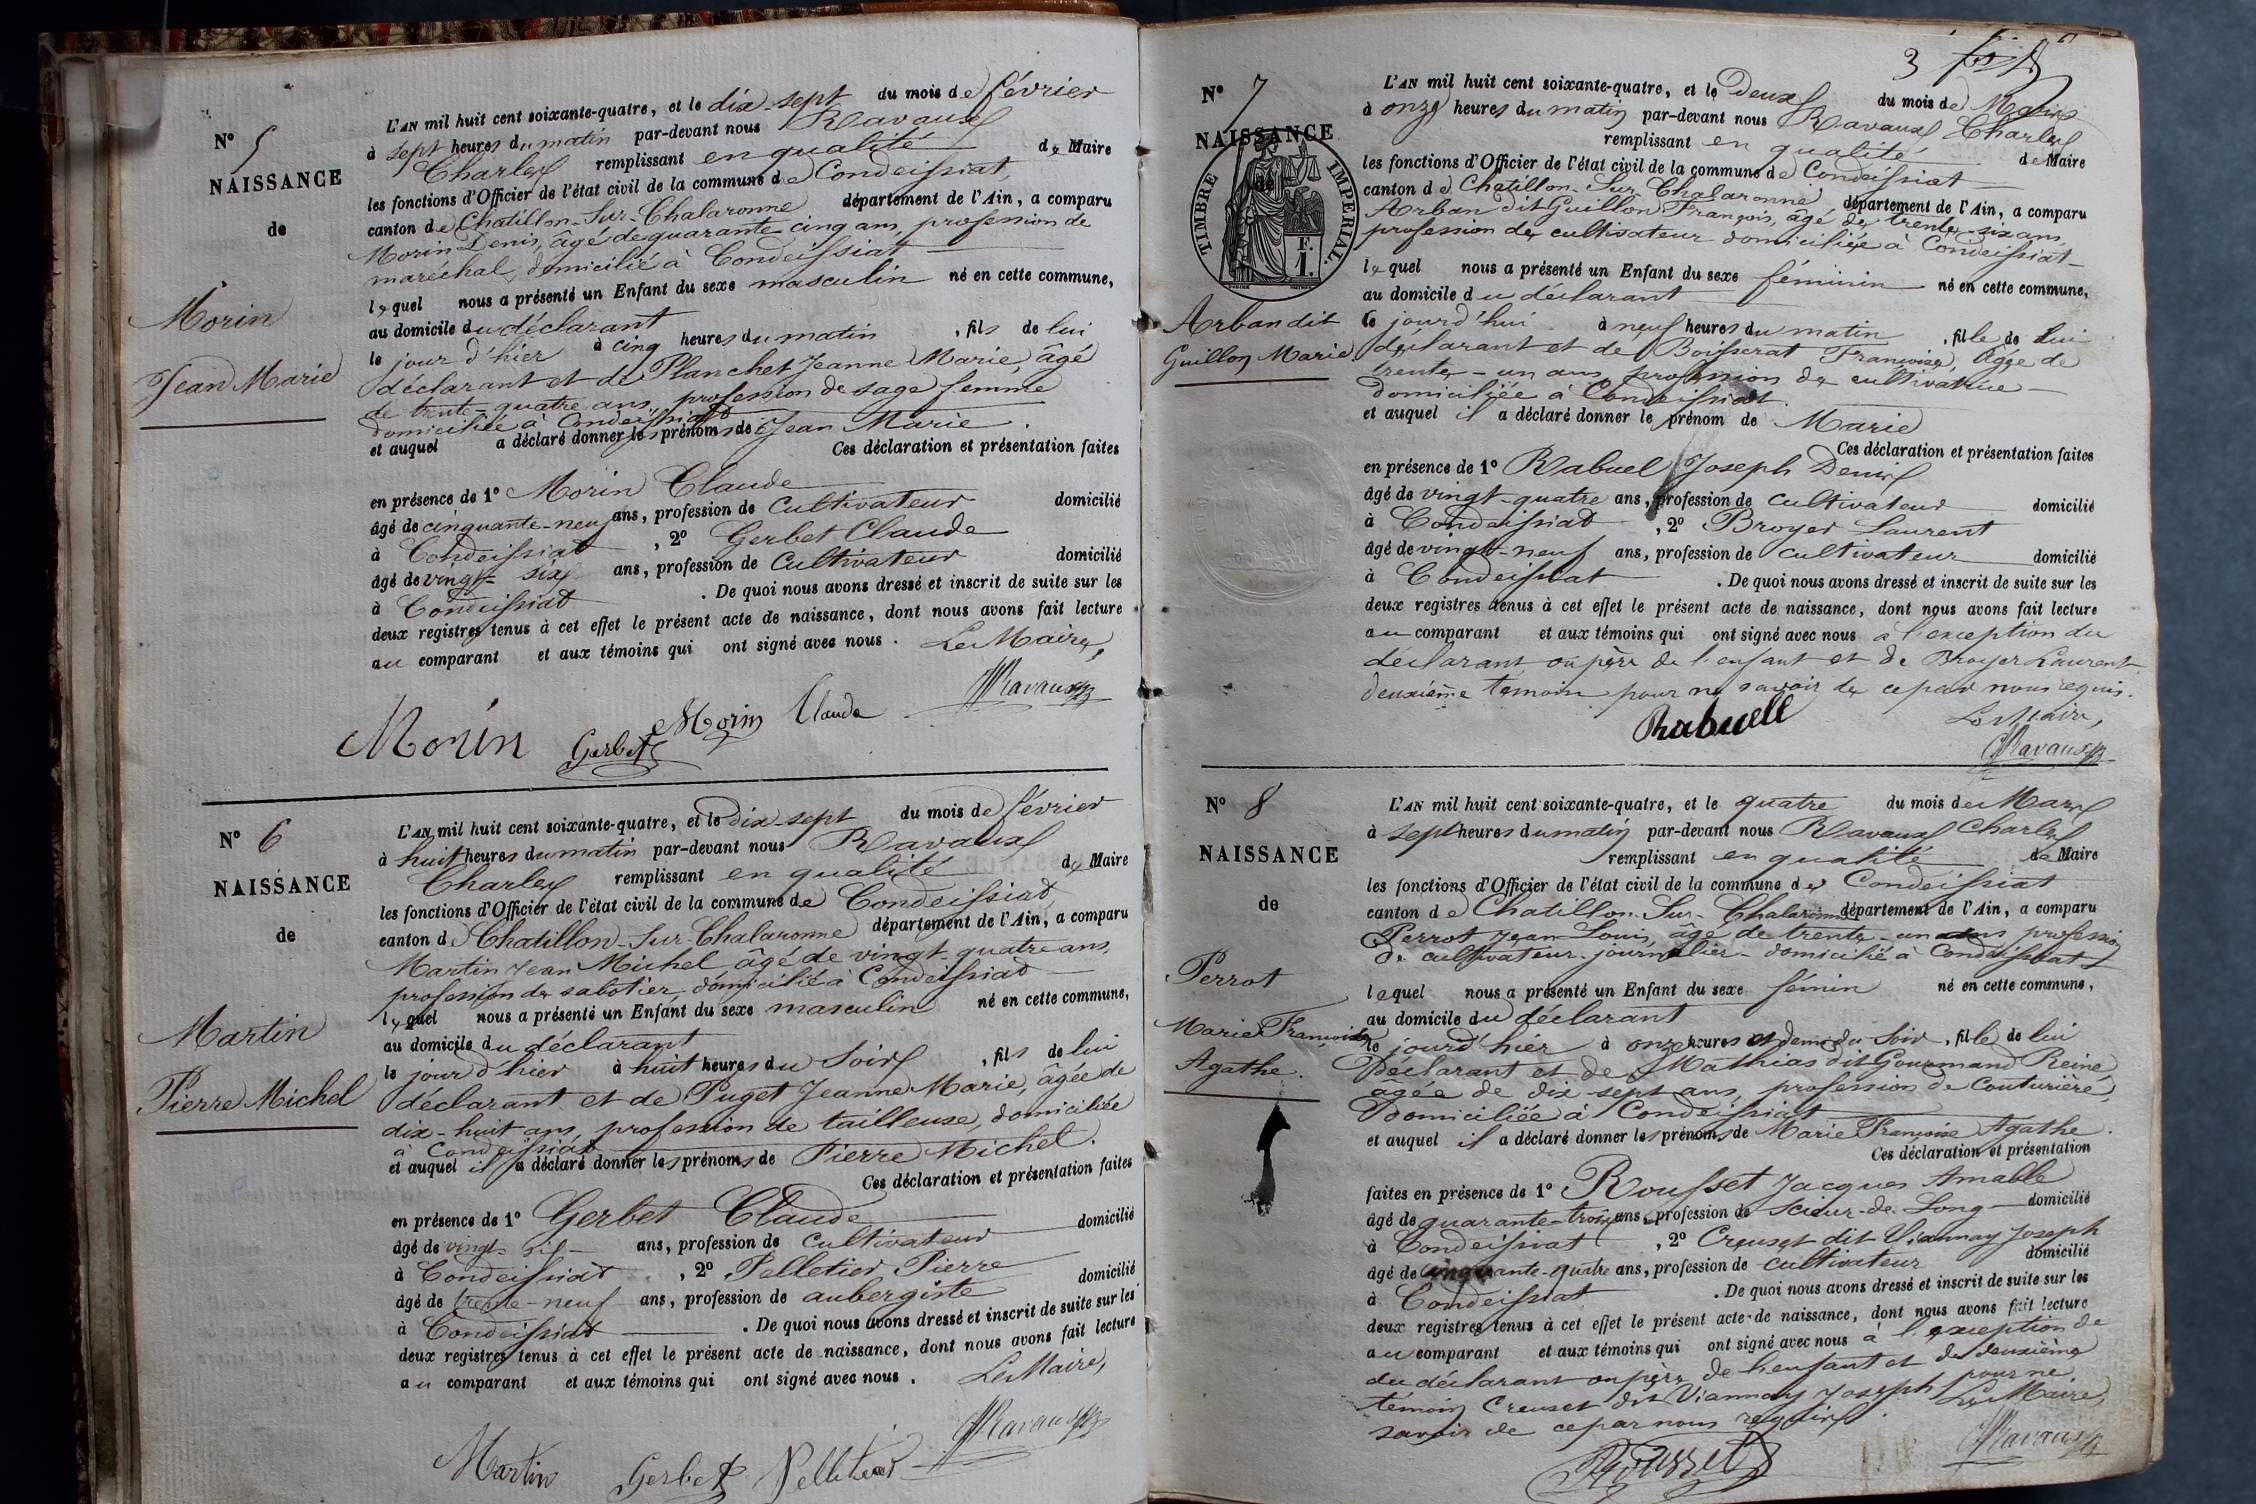 N° 5
NAISSANCE
de
Morin
Jean Marie
L'AN mil huit cent soixante-quatre, et le dix-sept du mois de février
à sept heures du matin par-devant nous Ravaux
Charles remplissant en qualité de Maire
les fonctions d'Officier de l'état civil de la commune de Condeissiat
canton de Chatillon-Sur-Chalaronne département de l'Ain, a comparu
Morin Denis, âgé de quarante cinq ans, profession de
maréchal, domicilié à Condeissiat
lequel nous a présenté un Enfant du sexe masculin né en cette commune,
au domicile du déclarant
le jour d'hier à cinq heures du matin, fils de lui
déclarant et de Planchet Jeanne Marie, âgé
de trente-quatre ans, profession de sage femme
domiciliée à Condeissiat
et auquel a déclaré donner les prénoms de Jean Marie.
Ces déclaration et présentation faites
en présence de 1° Morin Claude
âgé de cinquante-neuf ans, profession de cultivateur domicilié
à Condeissiat, 2° Gerbet Claude
âgé de vingt-six ans, profession de cultivateur domicilié
à Condeissiat. De quoi nous avons dressé et inscrit de suite sur les
deux registres tenus à cet effet le présent acte de naissance, dont nous avons fait lecture
au comparant et aux témoins qui ont signé avec nous. Le Maire,
Morin Gerbet Morin Claude Ravaux
N° 6
NAISSANCE
de
Martin
Pierre Michel
L'AN mil huit cent soixante-quatre, et le dix-sept du mois de février
à huit heures du matin par-devant nous Ravaux
Charles remplissant en qualité de Maire
les fonctions d'Officier de l'état civil de la commune de Condeissiat
canton de Chatillon-Sur-Chalaronne département de l'Ain, a comparu
Martin Jean Michel âgé de vingt-quatre ans,
profession de sabotier, domicilié à Condeissiat
lequel nous a présenté un Enfant du sexe masculin né en cette commune,
au domicile du déclarant
le jour d'hier à huit heures du Soir, fils de lui
déclarant et de Puget Jeanne Marie, âgée de
dix-huit ans, profession de tailleuse, domiciliée
à Condeissiat
et auquel il a déclaré donner les prénoms de Pierre Michel.
Ces déclaration et présentation faites
en présence de 1° Gerbet Claude
âgé de vingt-six ans, profession de cultivateur domicilié
à Condeissiat, 2° Pelletier Pierre
âgé de trente-neuf ans, profession de aubergiste domicilié
à Condeissiat. De quoi nous avons dressé et inscrit de suite sur les
deux registres tenus à cet effet le présent acte de naissance, dont nous avons fait lecture
au comparant et aux témoins qui ont signé avec nous. Le Maire,
Martin Gerbet Pelletier Ravaux
3
N° 7
NAISSANCE
de
TIMBRE IMPERIAL
F.
1.
Arban dit
Guillon Marie
L'AN mil huit cent soixante-quatre, et le deux du mois de Mars
à onze heures du matin par-devant nous Ravaux Charles
remplissant en qualité de Maire
les fonctions d'Officier de l'état civil de la commune de Condeissiat
canton de Chatillon-Sur-Chalaronne département de l'Ain, a comparu
Arban dit Guillon François, âgé de trente-six ans,
profession de cultivateur domiciliée à Condeissiat
lequel nous a présenté un Enfant du sexe féminin né en cette commune,
au domicile du déclarant
le jourd'hui à neuf heures du matin, fille de lui
déclarant et de Boisserat Françoise, âgée de
trente-un ans, profession de cultivatrice
domiciliée à Condeissiat.
et auquel il a déclaré donner le prénom de Marie
Ces déclaration et présentation faites
en présence de 1° Rabuel Joseph Denis
âgé de vingt-quatre ans, profession de cultivateur domicilié
à Condeissiat, 2° Broyer Laurent
âgé de vingt-neuf ans, profession de cultivateur domicilié
à Condeissiat. De quoi nous avons dressé et inscrit de suite sur les
deux registres tenus à cet effet le présent acte de naissance, dont nous avons fait lecture
au comparant et aux témoins qui ont signé avec nous à l'exception du
déclarant ou père de l'enfant et de Broyer Laurent
deuxième témoin pour ne savoir de ce par nous requis.
Rabuell Le Maire,
Ravaux
N° 8
NAISSANCE
de
Perrot
Marie Françoise
Agathe.
L'AN mil huit cent soixante-quatre, et le quatre du mois de Mars
à sept heures du matin par-devant nous Ravaux Charles
remplissant en qualité de Maire
les fonctions d'Officier de l'état civil de la commune de Condeissiat
canton de Chatillon-Sur-Chalaronne département de l'Ain, a comparu
Perrot Jean Louis, âgé de trente-un ans profession
de cultivateur-journalier-domicilié à Condeissiat
lequel nous a présenté un Enfant du sexe féminin né en cette commune,
au domicile du déclarant
le jourd'hier à onze heures et demie du Soir, fille de lui
Déclarant et de Mathias dit Gourmand Reine
âgée de dix sept ans, profession de couturière,
domiciliée à Condeissiat
et auquel il a déclaré donner les prénoms de Marie Françoise Agathe.
Ces déclaration et présentation
faites en présence de 1° Rousset Jacques Amable
âgé de quarante-trois ans, profession de Scieur-de-Long domicilié
à Condeissiat, 2° Creuset dit Viannay Joseph
âgé de cinquante-quatre ans, profession de cultivateur domicilié
à Condeissiat. De quoi nous avons dressé et inscrit de suite sur les
deux registres tenus à cet effet le présent acte de naissance, dont nous avons fait lecture
au comparant et aux témoins qui ont signé avec nous à l'exception de
du déclarant ou père de l'enfant et du deuxième
témoin Creuset dit Viannay Joseph pour ne
savoir de ce par nous requis. Le Maire,
Rousset Ravaux